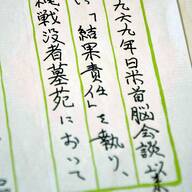 九六九年日米首脳会談以来
い「結果責任」を執り、
縄戦没者墓苑において